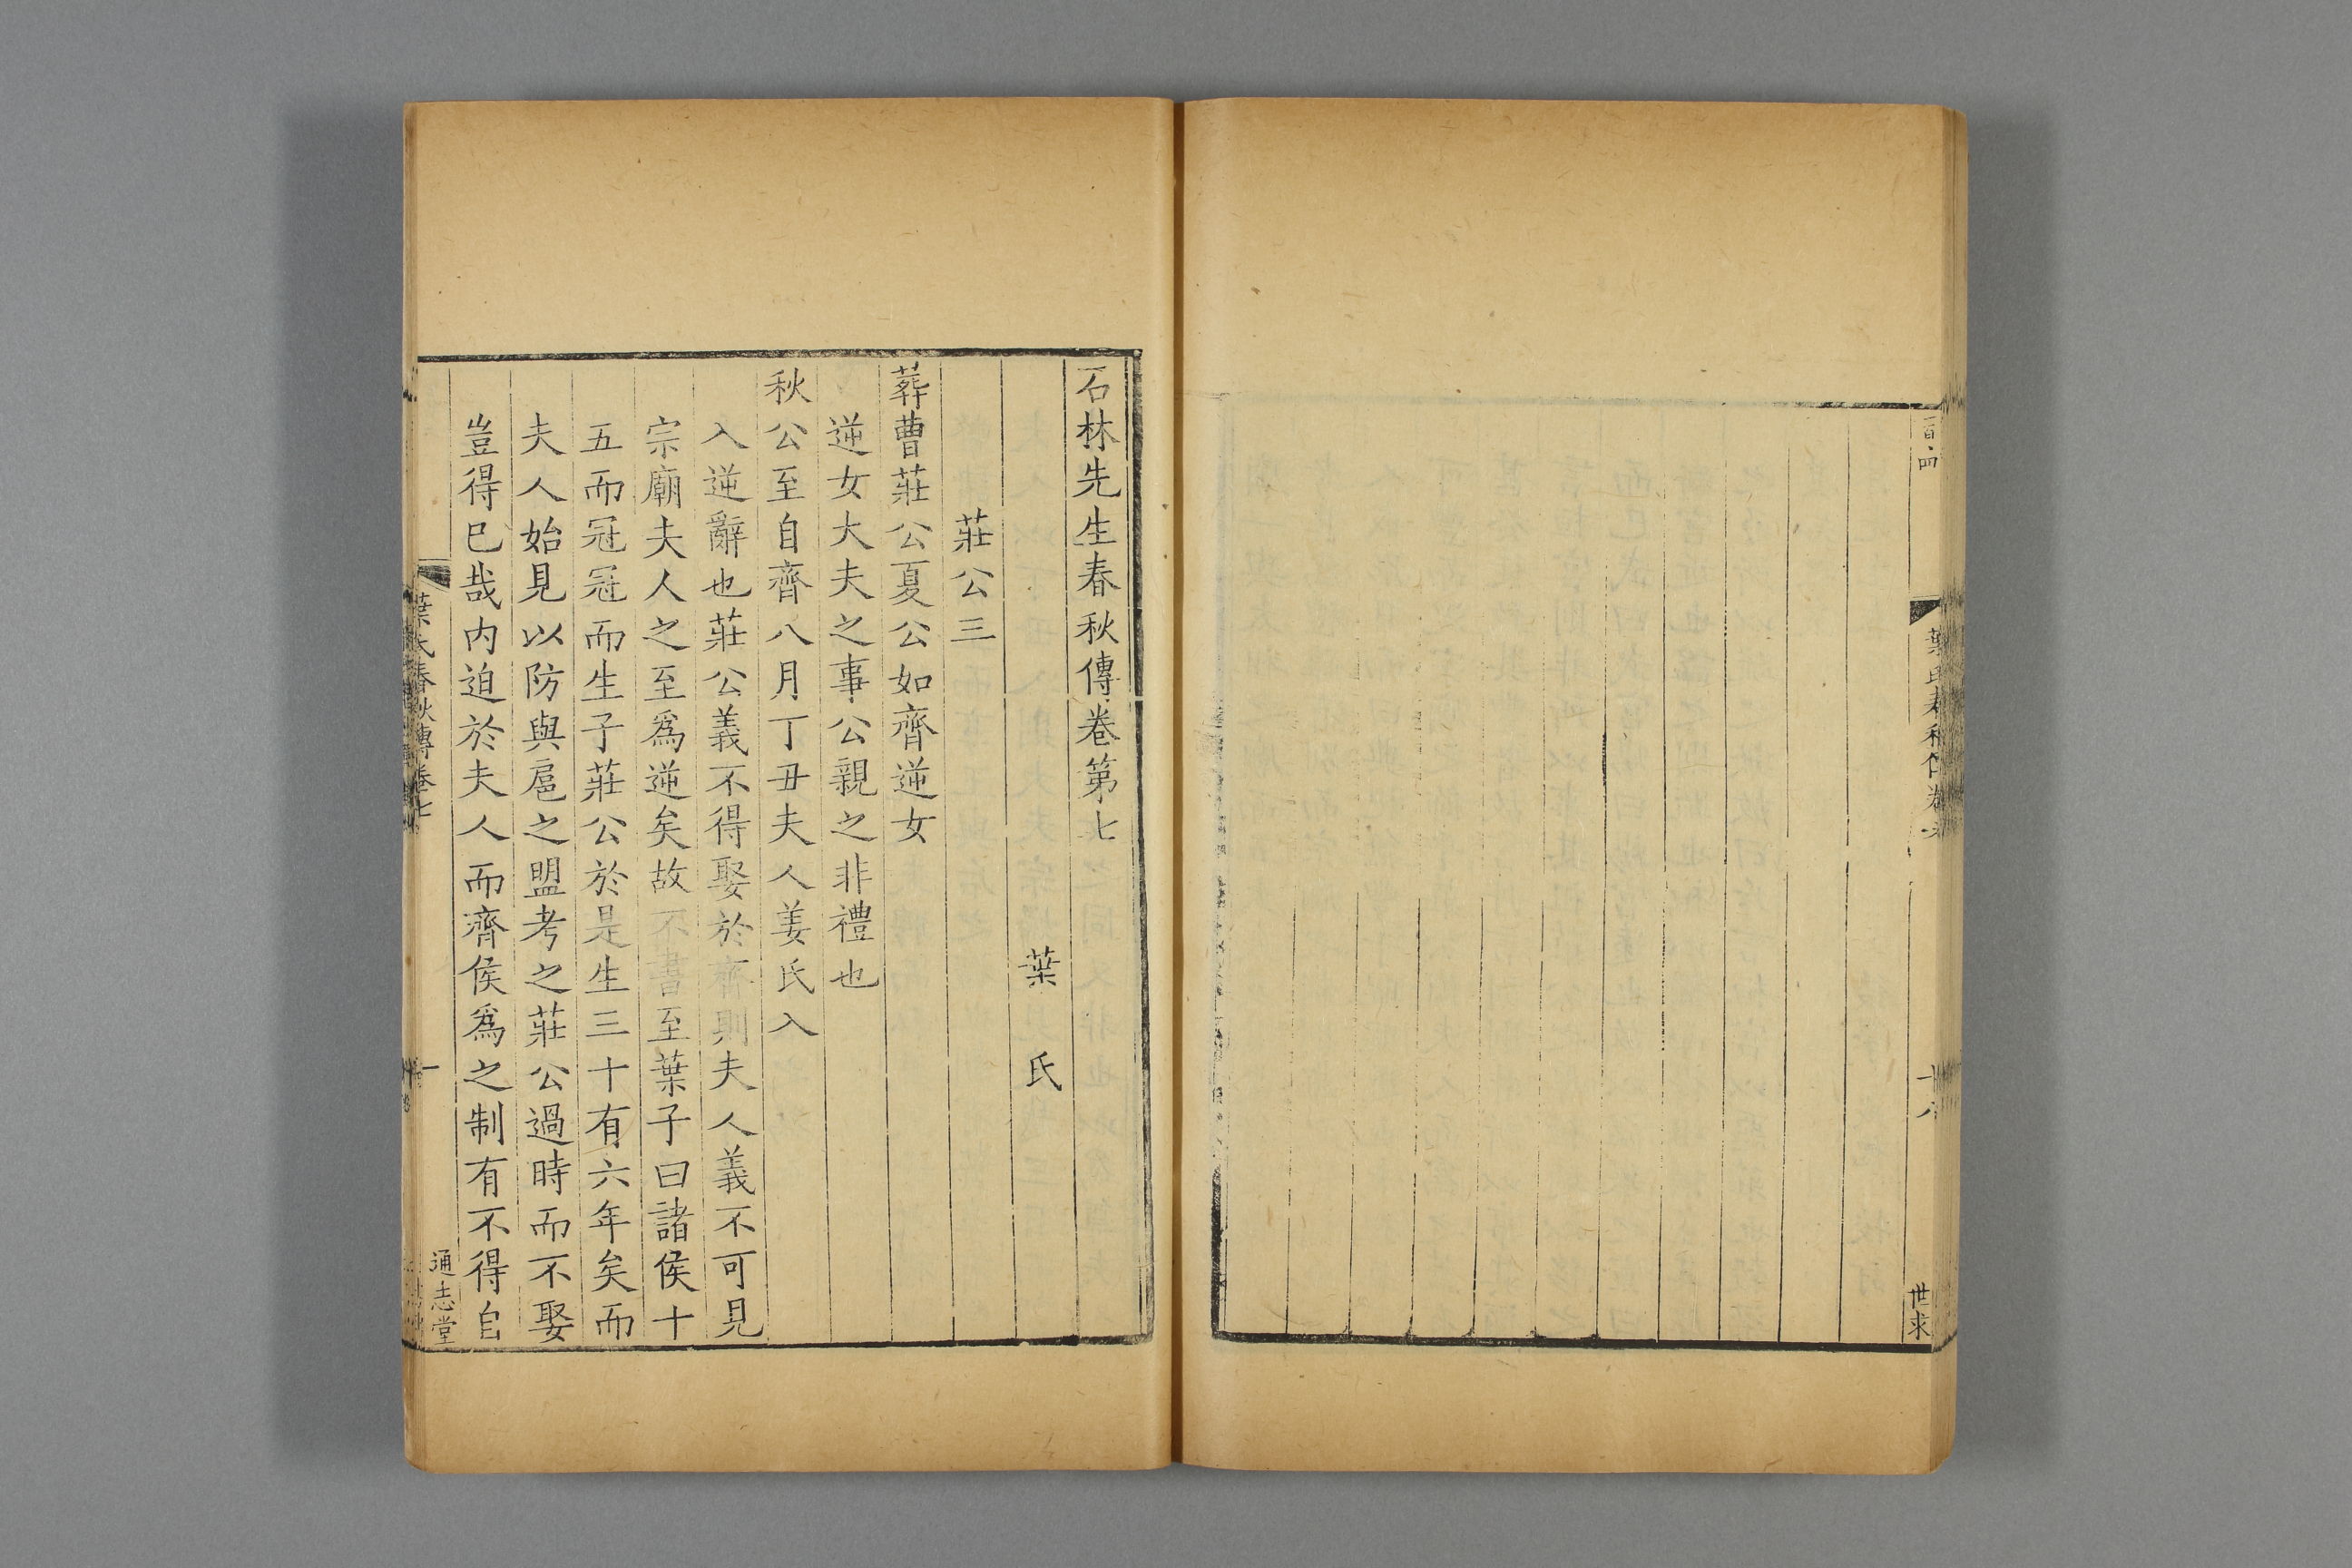 百四
葉氏春秋傳卷六
十八
世求
石林先生春秋傳卷第七
葉氏
莊公三
葬曹莊公夏公如齊逆女
逆女大夫之事公親之非禮也
秋公至自齊八月丁丑夫人姜氏入
入逆辭也莊公義不得娶於齊則夫人義不可見
宗廟夫人之至爲逆矣故不書至葉子曰諸侯十
五而冠冠而生子莊公於是生三十有六年矣而
夫人始見以防與扈之盟考之莊公過時而不娶
豈得已哉内迫於夫人而齊侯爲之制有不得自
葉氏春秋傳卷七
一
通志堂